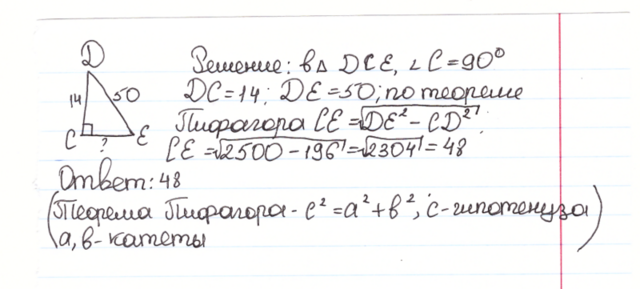 D
14 50
C ? E
Решение: в△ DCE, ∠C=90°
DC=14; DE=50; по теореме
Пифагора CE=√DE²-CD²;
CE=√2500-196=√2304=48
Ответ: 48
(Теорема Пифагора - c²=a²+в², c-гипотенуза
a, в-катеты)